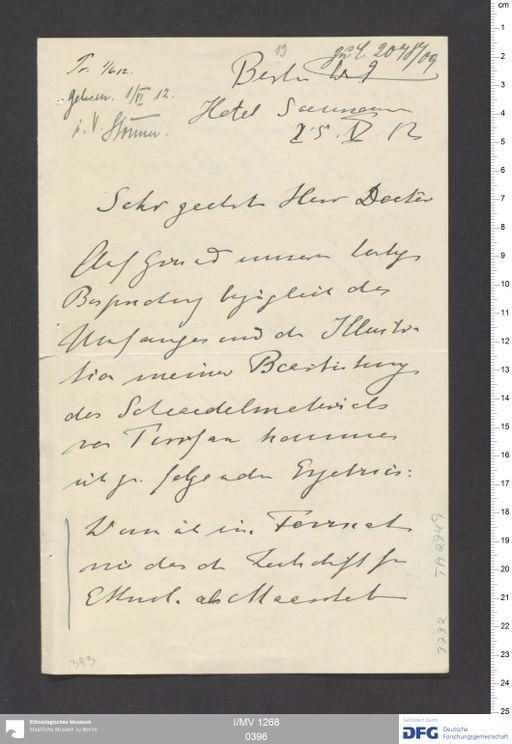 19
zu E. 2078/09
Tr. 4/6 12.
Berlin W 9
gelesen. 1/VI 12.
Hotel
i. V. Stönner.
25. V 12
Sehr geehrter Herr Doctor
Auf Grund unserer letzten
Besprechung bezüglich des
Umfanges und der Illustra-
tion meiner Bearbeitung
des Schaedelmaterials
von Turfan komme
ich zu folgendem Ergebnis:
Wenn ich ein Format
wie das der Zeitschrift für
Ethnol. als Maasstab
TA 0949
3732
393
Ethnologisches Museum
Staatliche Museen zu Berlin
I/MV 1268
0396
Gefördert durch
DFG Deutsche
Forschungsgemeinschaft
cm
1
2
3
4
5
6
7
8
9
10
11
12
13
14
15
16
17
18
19
20
21
22
23
24
25